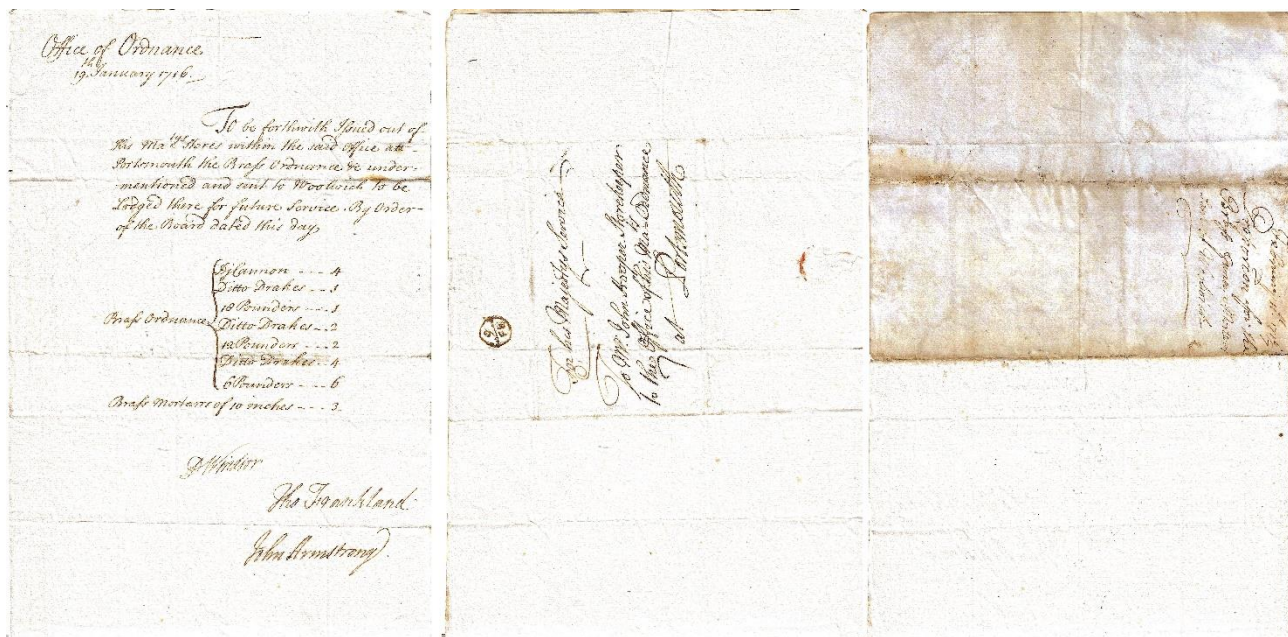 Office of Ordnance
19th January 1716
To be forthwith Issued out of
His Matys Stores within the said Office att
Portsmouth the Brass Ordnance &c under-
-mentioned and sent to Woolwich to be
Lodged there for future Service. By Order
of the Board dated this day
Brass Ordnance
Dj Cannon --- 4
Ditto Drakes -- 1
18 Pounders -- 1
Ditto Drakes -- 2
12 Pounders -- 2
Ditto Drakes -- 4
6 Pounders --- 6
Brass Mortars of 10 inches --- 3
Tho Frankland
John Armstrong
For his Majestys Service
To Mr John Storekeeper
to the Office of his Mats Ordnance
at Portsmouth
for the
Brass